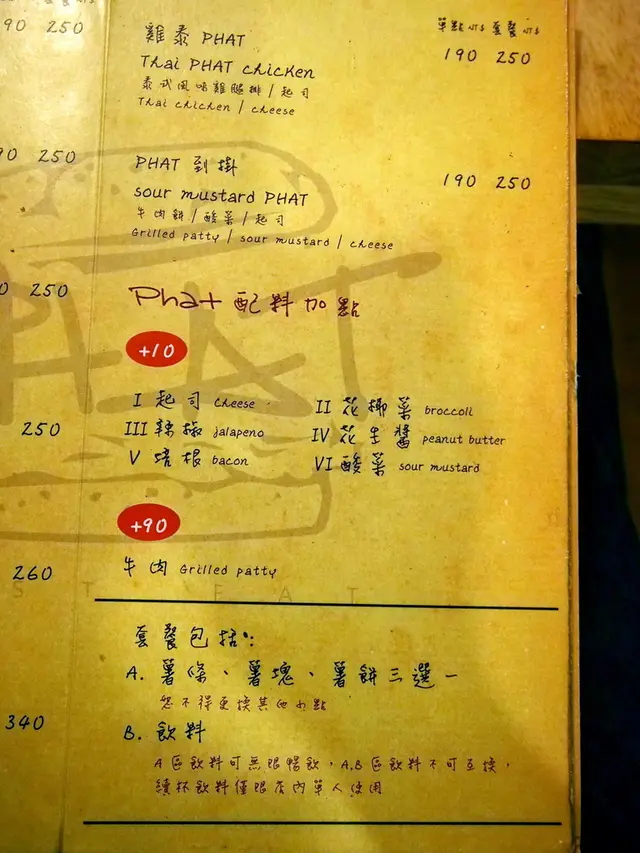 90 250
單點 NT$ 套餐 NT$
雞泰 PHAT
190 250
Thai PHAT chicken
泰式風味雞腿排 / 起司
Thai chicken / cheese
90 250
PHAT 到掛
190 250
sour mustard PHAT
牛肉餅 / 酸菜 / 起司
Grilled patty / sour mustard / cheese
0 250
Phat 配料加點
+10
I 起司 cheese
II 花椰菜 broccoli
250
III 辣椒 jalapeno
IV 花生醬 peanut butter
V 培根 bacon
VI 酸菜 sour mustard
+90
260
牛肉 Grilled patty
套餐包括:
A. 薯條、薯塊、薯餅三選一
恕不得更換其他小點
340
B. 飲料
A區飲料可無限暢飲,A,B區飲料不可互換,
續杯飲料僅限店內單人使用